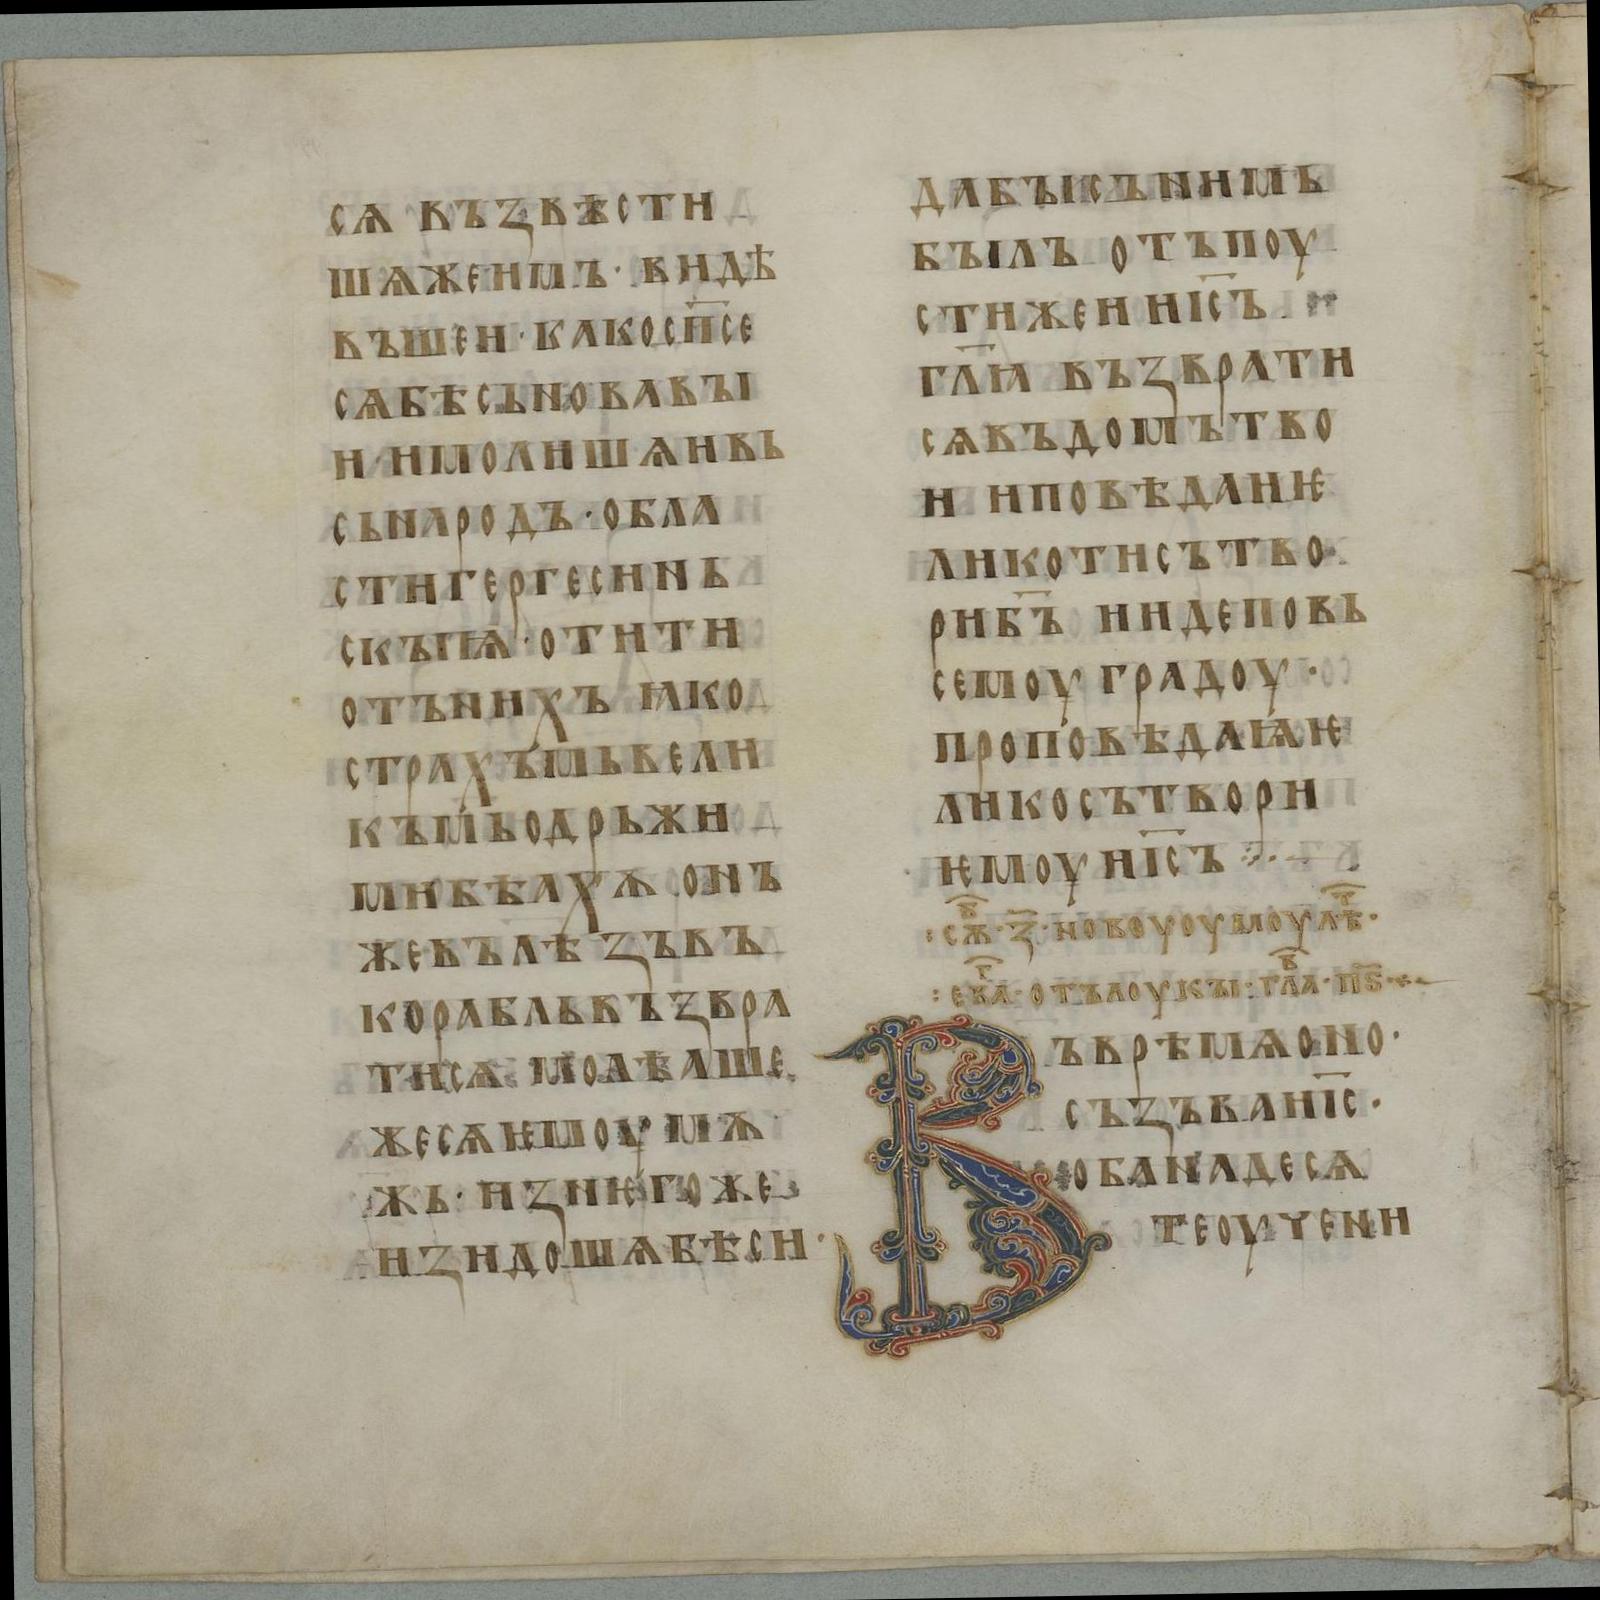 сѧ въꙁвѣсти
шѧжеимъ· видѣ
въшеи· какосп҃се
сѧбѣсъновавꙑ
и· имолишѧивь
сьнародъ· обла
стигергесиньь
скꙑѩ· отити
отънихъ ꙗко
страхъмьвели
къмьодрьжи
мибѣахѫ онъ
жевълѣꙁъвъ
корабльвъꙁвра
тисѧ молѣаше
жесѧѥмоу мѫ
жь· иꙁнѥгоже
иꙁидошѧбѣси·
дабꙑсънимь
бꙑлъ отъпоу
стижеиі҃съ
гл҃ꙗ въꙁврати
сѧвъдомътво
и иповѣдаиѥ
ликотисътво
риб҃ъ ииде повь
семоуградоу·
проповѣдаꙗѥ
ликосътвори
ѥмоуиі҃съ
:сѫв·ꙁ҃·новоуоумоулѣт·
:еваг·отълоукꙑ·глав·пѕ҃·
Въврѣмѧоно·
съꙁъваі҃с·
обанадесѧ
теоучени